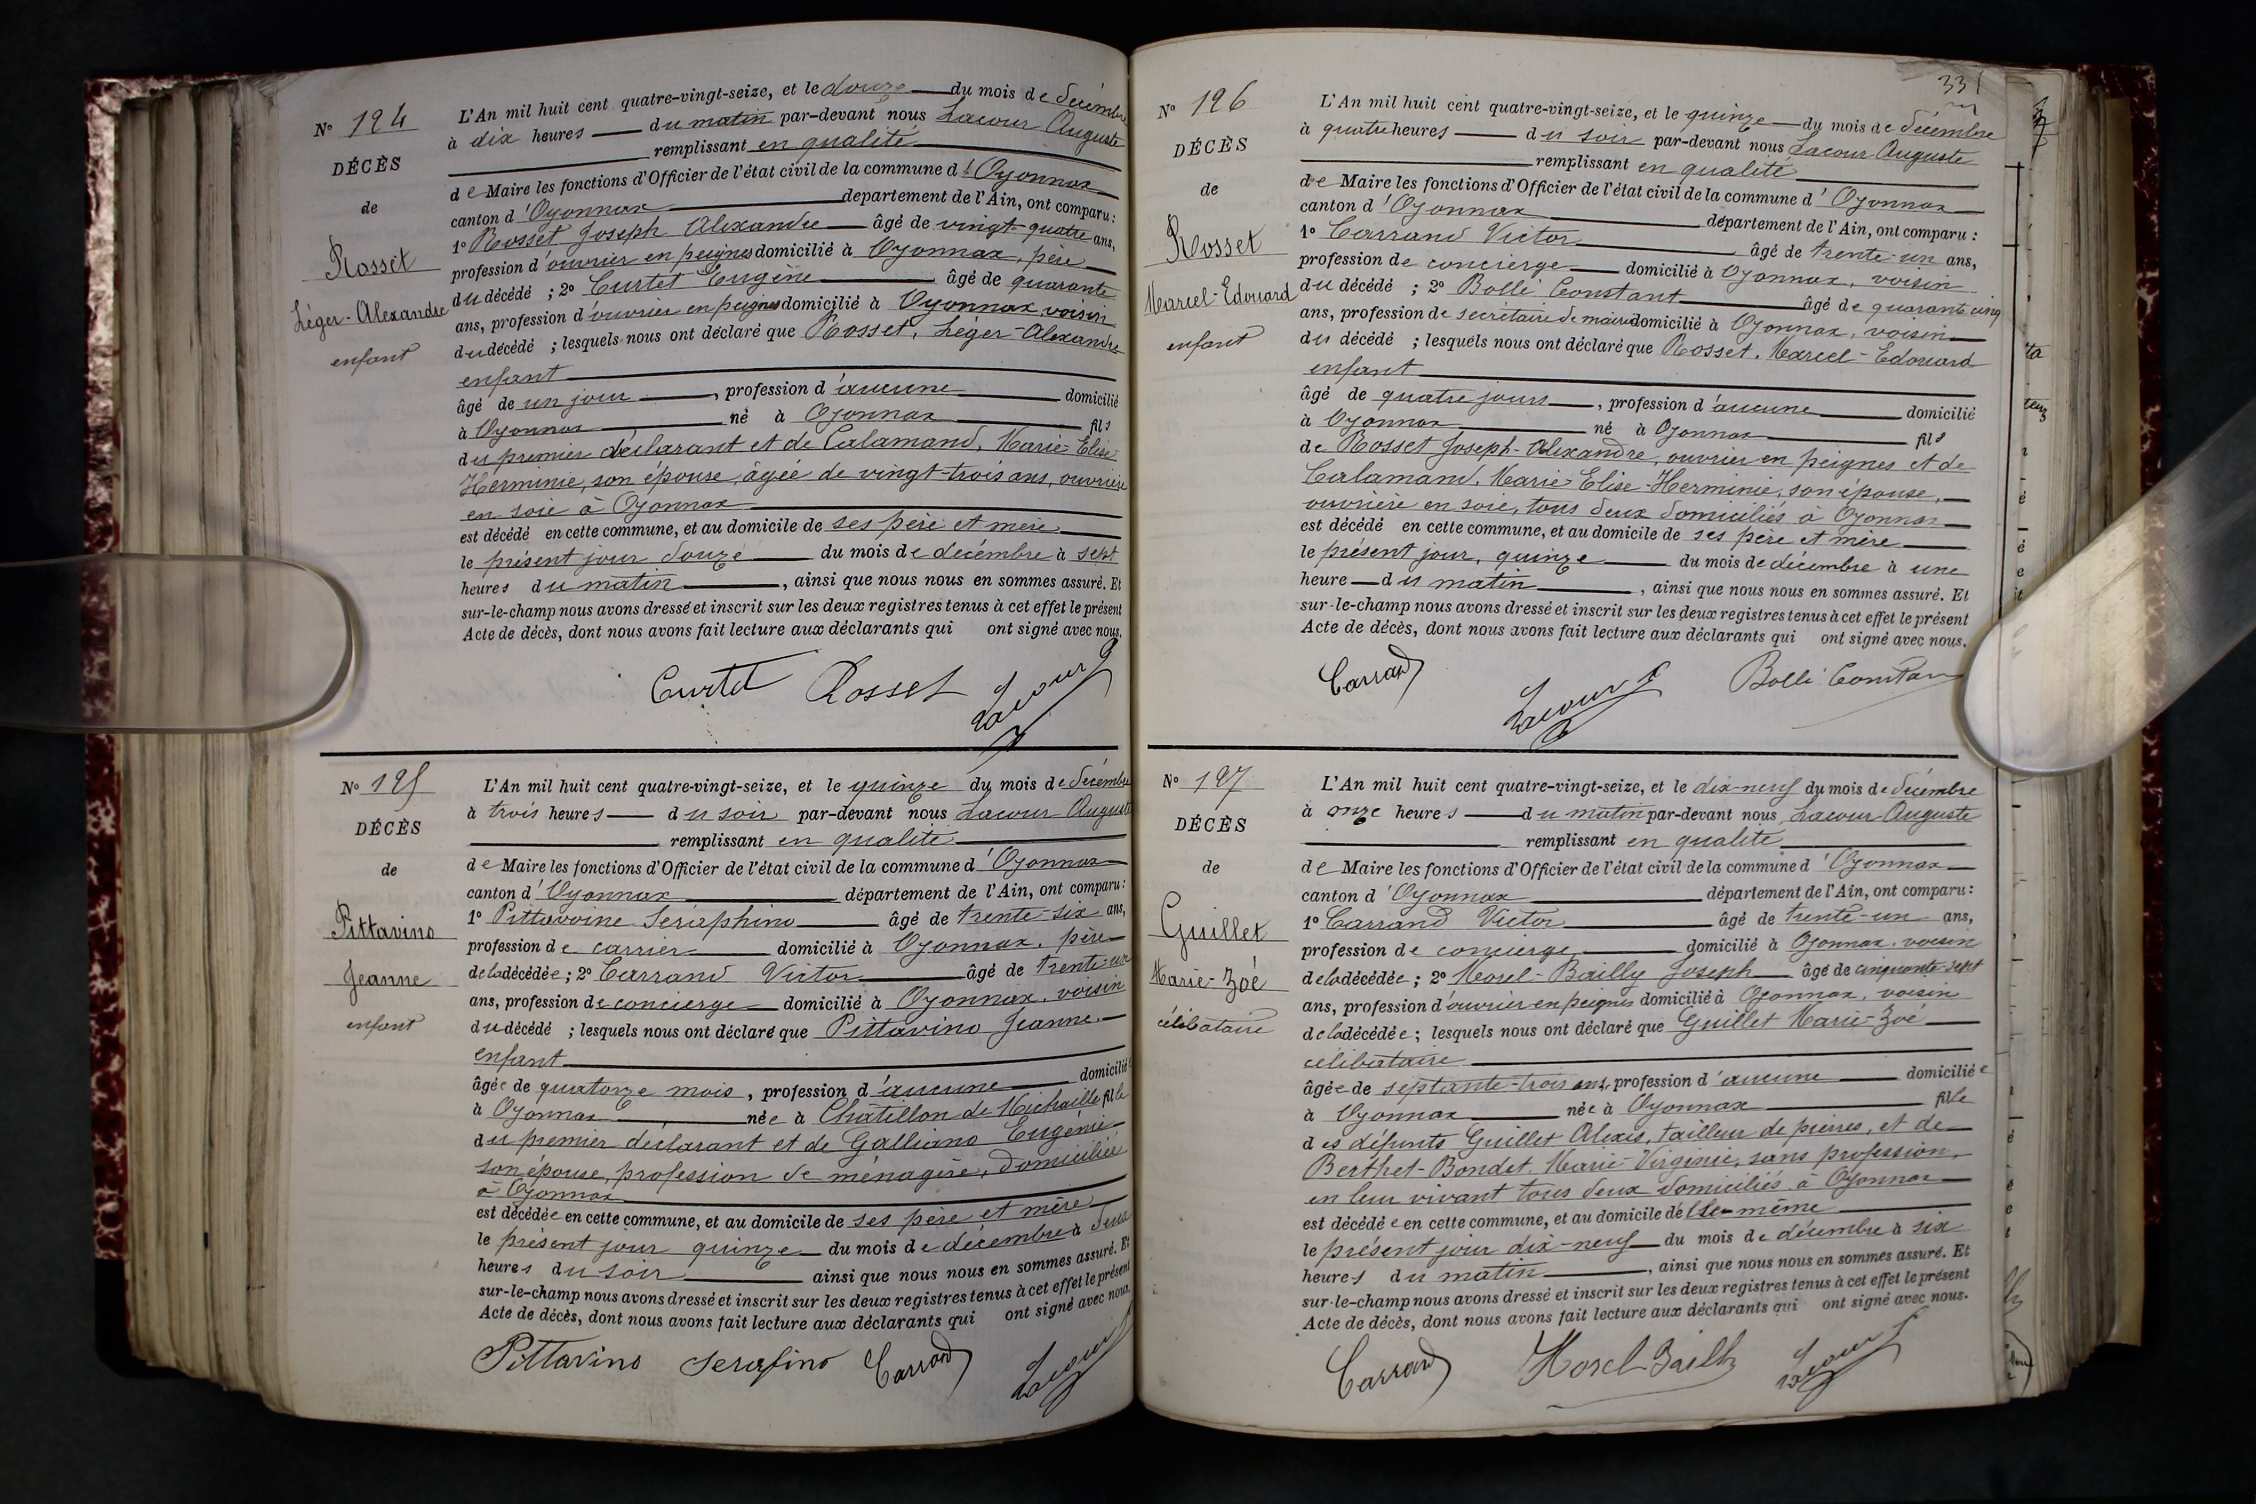 Nº 194
DÉCÈS
de
Rosset
Léger-Alexandre
enfant
L'An mil huit cent quatre-vingt-seize, et le douze du mois de décembre
à dix heures du matin par-devant nous Lacour Auguste
remplissant en qualité
de Maire les fonctions d'Officier de l'état civil de la commune d'Oyonnax
canton d'Oyonnax département de l'Ain, ont comparu :
1º Rosset Joseph Alexandre âgé de vingt-quatre ans,
profession d'ouvrier en peignes domicilié à Oyonnax, père
du décédé ; 2º Curtet Eugène âgé de quarante
ans, profession d'ouvrier en peignes domicilié à Oyonnax voisin
du décédé ; lesquels nous ont déclaré que Rosset, Léger-Alexandre
enfant
âgé de un jour, profession d'aucune domicilié
à Oyonnax né à Oyonnax fils
du premier déclarant et de Calamand, Marie-Elise
Herminie, son épouse, âgée de vingt-trois ans, ouvrière
en soie à Oyonnax
est décédé en cette commune, et au domicile de ses père et mère
le présent jour douze du mois de décembre à sept
heures du matin, ainsi que nous nous en sommes assuré. Et
sur-le-champ nous avons dressé et inscrit sur les deux registres tenus à cet effet le présent
Acte de décès, dont nous avons fait lecture aux déclarants qui ont signé avec nous.
Curtet Rosset Lacour
Nº 195
DÉCÈS
de
Pittavino
Jeanne
enfant
L'An mil huit cent quatre-vingt-seize, et le quinze du mois de décembre
à trois heures du soir par-devant nous Lacour Auguste
remplissant en qualité
de Maire les fonctions d'Officier de l'état civil de la commune d'Oyonnax
canton d'Oyonnax département de l'Ain, ont comparu :
1º Pittavoine Séraphino âgé de trente-six ans,
profession de carrier domicilié à Oyonnax, père
de la décédée ; 2º Carrand Victor âgé de trente-un
ans, profession de concierge domicilié à Oyonnax, voisin
du décédé ; lesquels nous ont déclaré que Pittavino Jeanne
enfant
âgée de quatorze mois, profession d'aucune domiciliée
à Oyonnax née à Châtillon de Michaille fille
du premier déclarant et de Galliano Eugénie
son épouse, profession de ménagère, domiciliée
à Oyonnax
est décédée en cette commune, et au domicile de ses père et mère
le présent jour quinze du mois de décembre à deux
heures du soir ainsi que nous nous en sommes assuré. Et
sur-le-champ nous avons dressé et inscrit sur les deux registres tenus à cet effet le présent
Acte de décès, dont nous avons fait lecture aux déclarants qui ont signé avec nous.
Pittavino Serafino Carrand Lacour
331
Nº 196
DÉCÈS
de
Rosset
Marcel-Edouard
enfant
L'An mil huit cent quatre-vingt-seize, et le quinze du mois de décembre
à quatre heures du soir par-devant nous Lacour Auguste
remplissant en qualité
de Maire les fonctions d'Officier de l'état civil de la commune d'Oyonnax
canton d'Oyonnax département de l'Ain, ont comparu :
1º Carrand Victor âgé de trente-un ans,
profession de concierge domicilié à Oyonnax, voisin
du décédé ; 2º Bollé Constant âgé de quarante cinq
ans, profession de secrétaire de mairie domicilié à Oyonnax, voisin
du décédé ; lesquels nous ont déclaré que Rosset, Marcel-Edouard
enfant
âgé de quatre jours, profession d'aucune domicilié
à Oyonnax né à Oyonnax fils
de Rosset Joseph-Alexandre, ouvrier en peignes et de
Calamand, Marie-Elise-Herminie, son épouse,
ouvrière en soie, tous deux domiciliés à Oyonnax
est décédé en cette commune, et au domicile de ses père et mère
le présent jour, quinze du mois de décembre à une
heure du matin, ainsi que nous nous en sommes assuré. Et
sur-le-champ nous avons dressé et inscrit sur les deux registres tenus à cet effet le présent
Acte de décès, dont nous avons fait lecture aux déclarants qui ont signé avec nous.
Carrand Lacour Bollé Constan
Nº 197
DÉCÈS
de
Guillet
Marie-Zoé
célibataire
L'An mil huit cent quatre-vingt-seize, et le dix-neuf du mois de décembre
à onze heures du matin par-devant nous Lacour Auguste
remplissant en qualité
de Maire les fonctions d'Officier de l'état civil de la commune d'Oyonnax
canton d'Oyonnax département de l'Ain, ont comparu :
1º Carrand Victor âgé de trente-un ans,
profession de concierge domicilié à Oyonnax, voisin
de la décédée ; 2º Morel-Bailly Joseph âgé de cinquante-sept
ans, profession d'ouvrier en peignes domicilié à Oyonnax, voisin
de la décédée ; lesquels nous ont déclaré que Guillet Marie-Zoé
célibataire
âgée de septante-trois ans, profession d'aucune domiciliée
à Oyonnax née à Oyonnax fille
des défunts Guillet Alexis, tailleur de pierres, et de
Berthet-Bondet, Marie-Virginie, sans profession,
en leur vivant tous deux domiciliés à Oyonnax
est décédée en cette commune, et au domicile d'elle-même
le présent jour dix-neuf du mois de décembre à six
heures du matin, ainsi que nous nous en sommes assuré. Et
sur-le-champ nous avons dressé et inscrit sur les deux registres tenus à cet effet le présent
Acte de décès, dont nous avons fait lecture aux déclarants qui ont signé avec nous.
Carrand Morel-Bailly Lacour